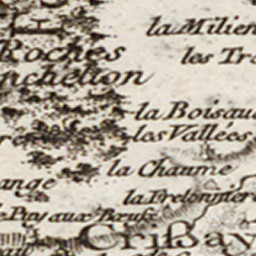 la Milien
Roches
les Tro
nchelion
la Boisau
les Vallées
la Chaume
ange
la Frelonniere
le Puy aux Bœufs
Crißay